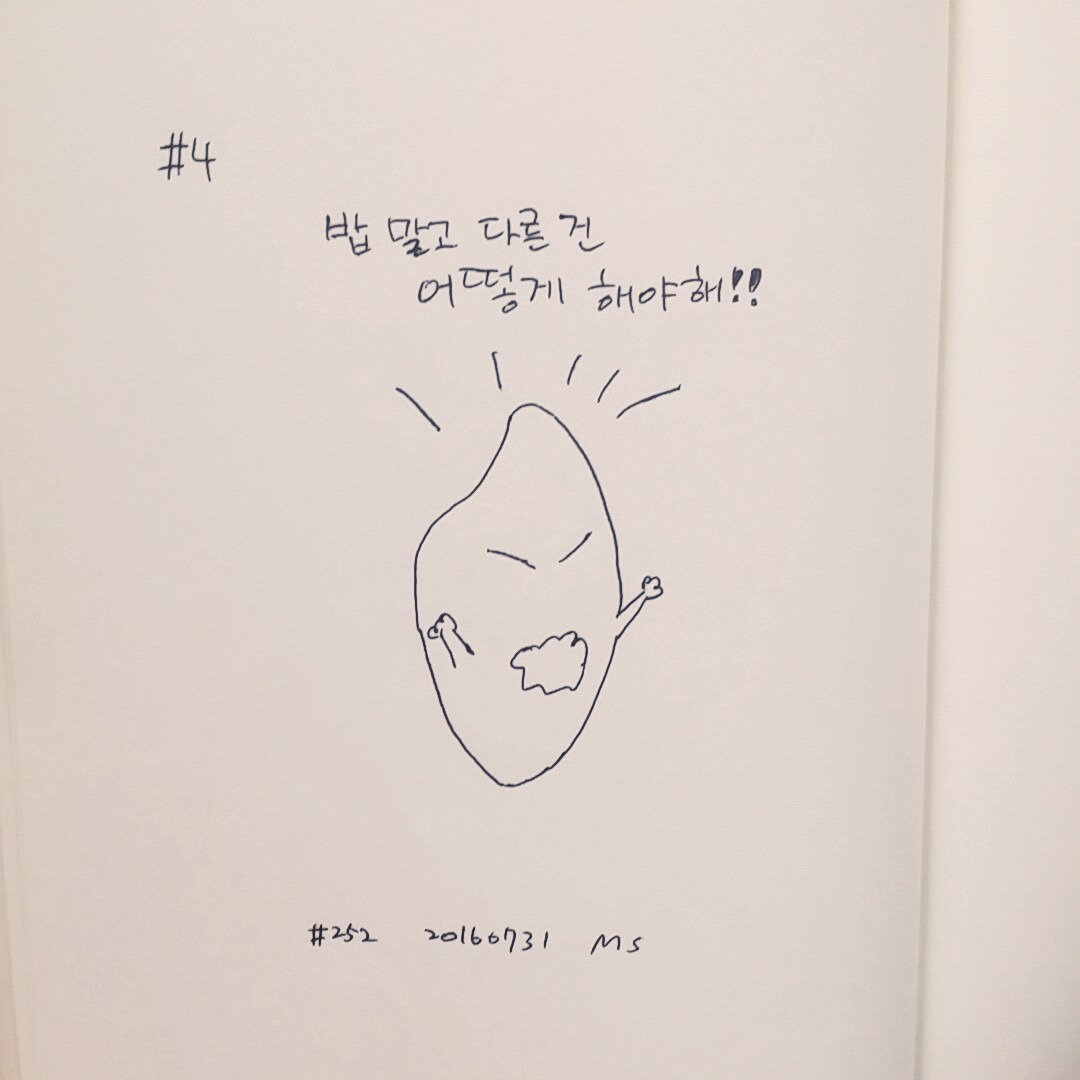 #4
밥 말고 다른 건
어떻게 해야해!!
#252 20160731 MS